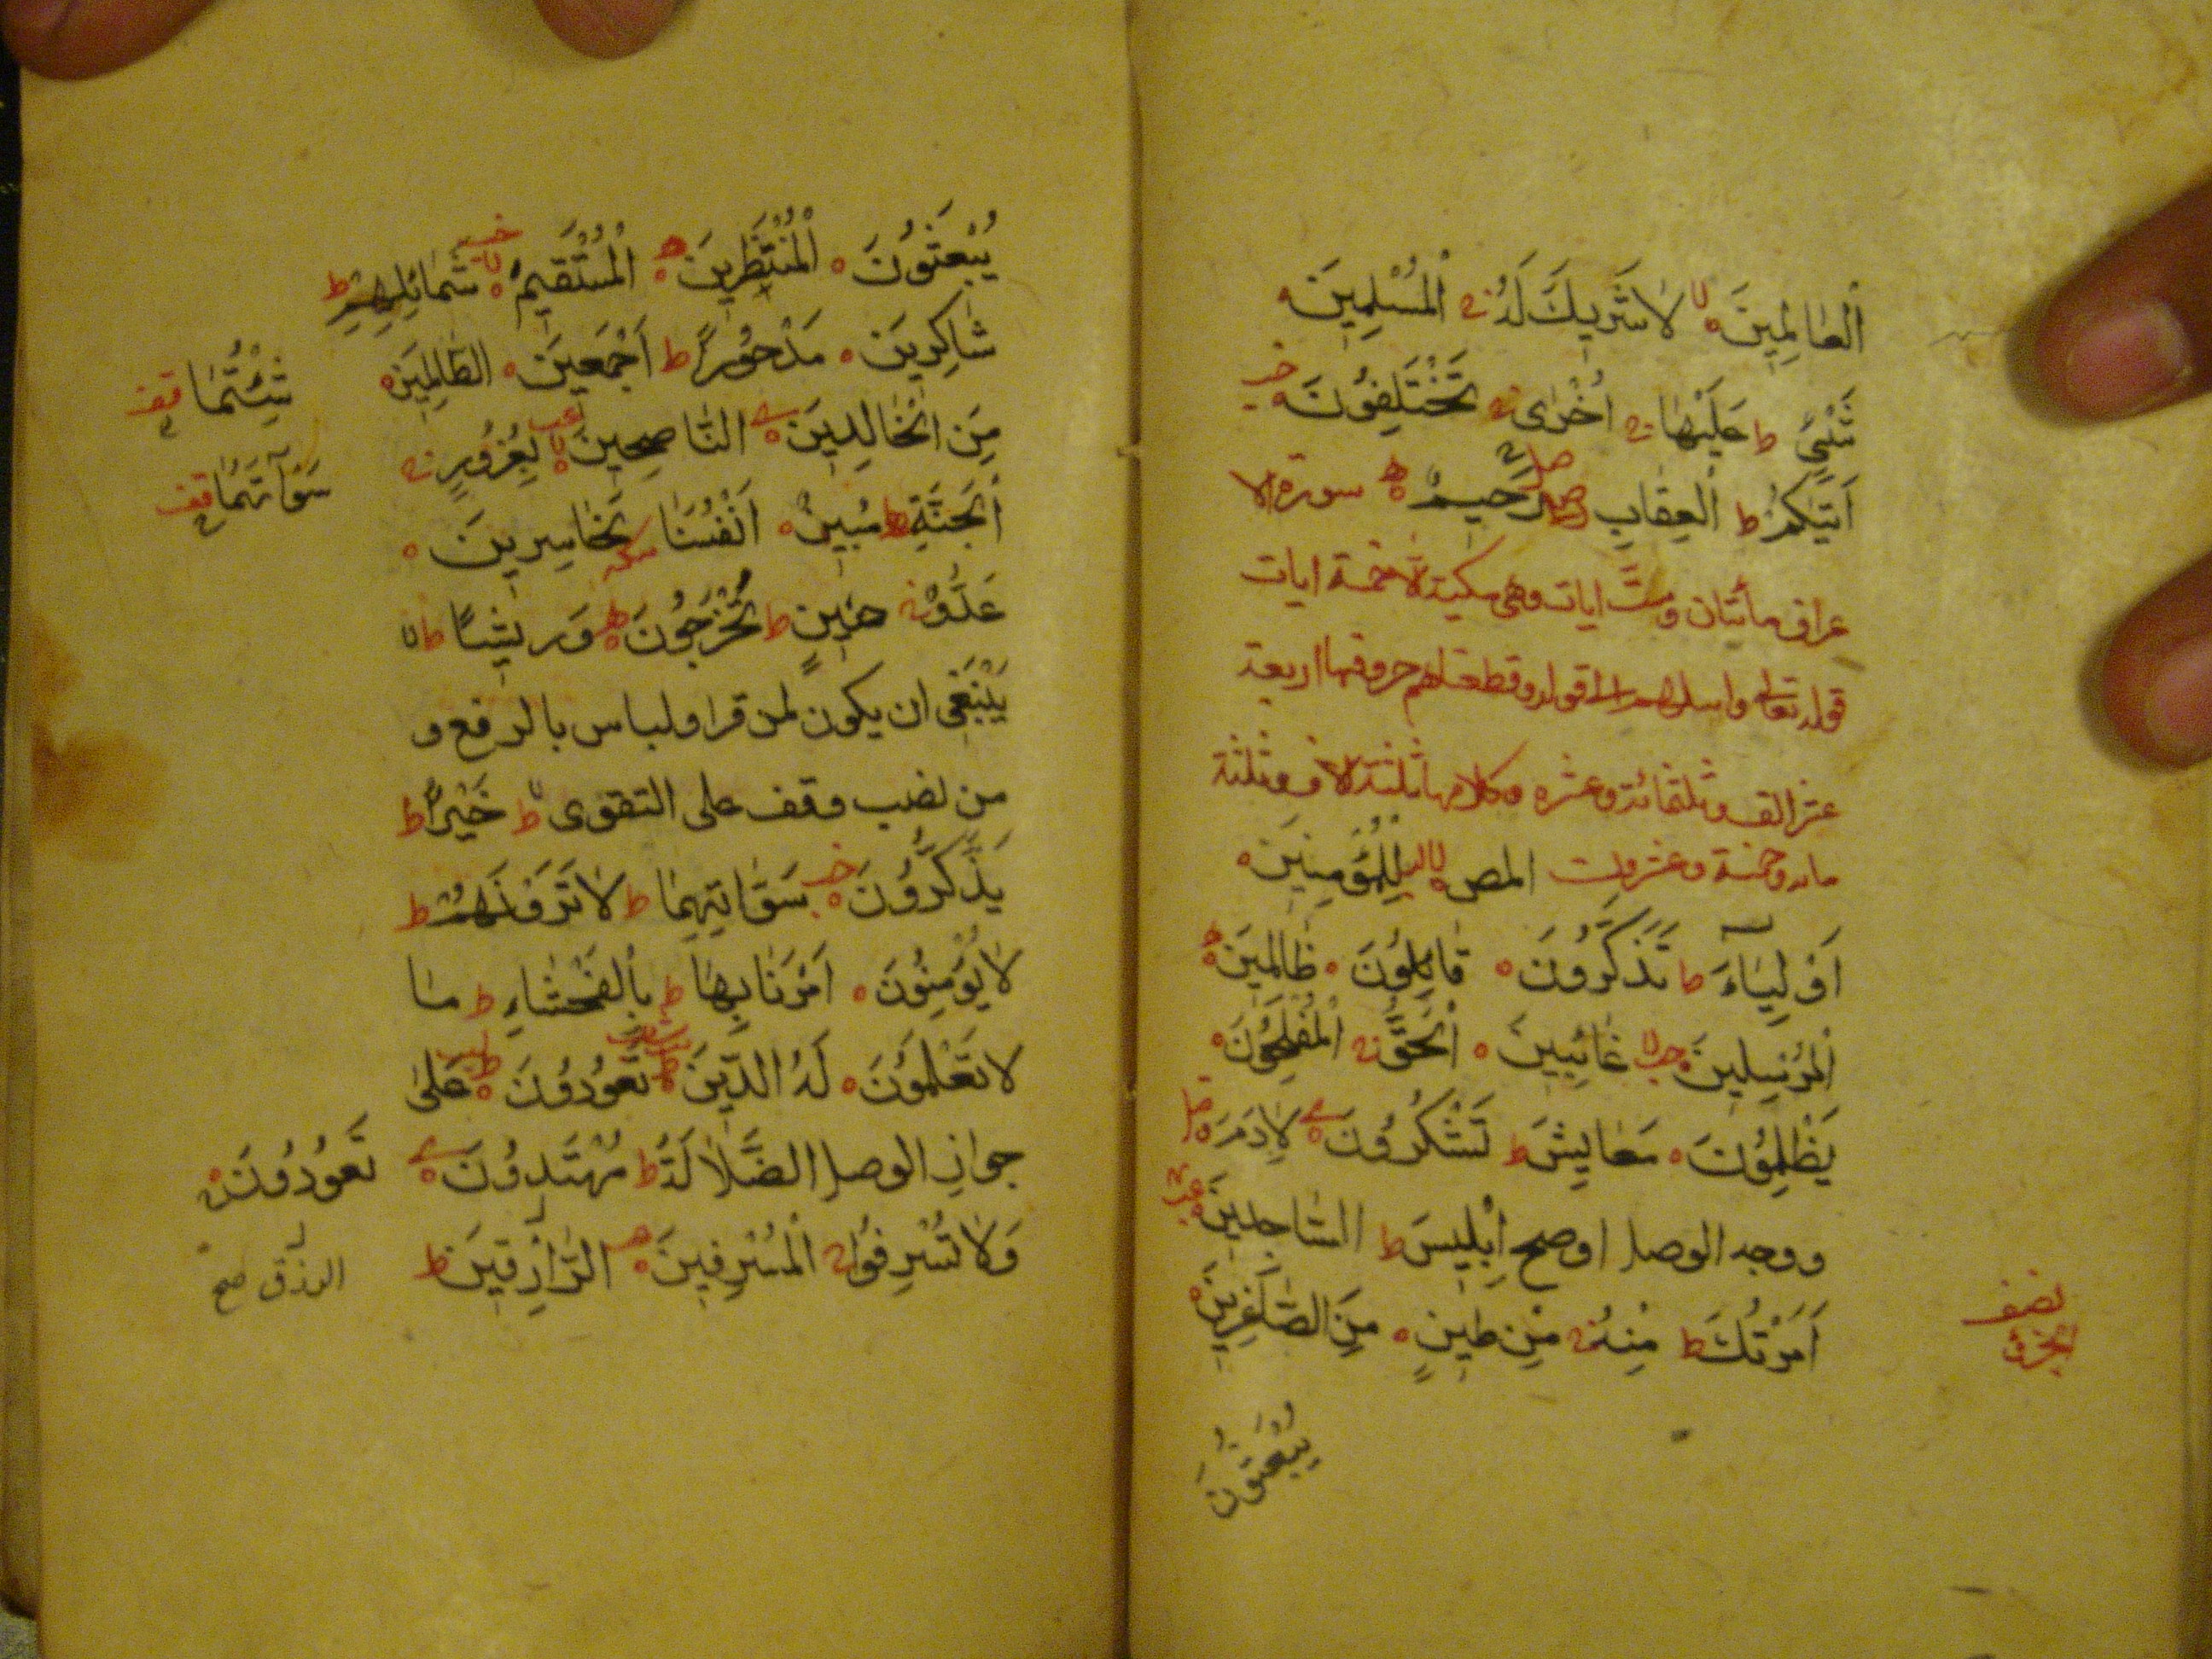 اَلْعَالَمِينَ لا لَا شَرِيكَ لَهُ ج اَلْمُسْلِمِينَ
شَىْءٍ ط عَلَيْهَا ج اُخْرٰى ج تَخْتَلِفُونَ
اٰتٰيكُمْ ط اَلْعِقَابِ رَحِيمٌ سورة الا
عراف مائتان وست ايات وهى مكية الا خمسة ايات
قوله تعالى واسئلهم الى قوله وقطعناهم حروفها اربعة
عشر الف وثلثمائة وعشره وكلامها ثلثة الاف وثلثة
مائه وخمسة وعشرون المص لِلْمُؤْمِنِينَ
اَوْلِيَاءَ ط تَذَكَّرُونَ قَائِلُونَ ظَالِمِينَ
اَلْمُرْسَلِينَ لا غَائِبِينَ اَلْحَقُّ ج اَلْمُفْلِحُونَ
يَظْلِمُونَ مَعَايِشَ ط تَشْكُرُونَ لِاٰدَمَ
ووجه الوصل اوضح اِبْلِيسَ ط السَّاجِدِينَ
اَمَرْتُكَ ط مِنْهُ ج مِنْ طِينٍ مِنَ الصَّاغِرِينَ
نصف
الجزؤ
يُبْعَثُونَ
يُبْعَثُونَ اَلْمُنْتَظَرِينَ اَلْمُسْتَقِيمَ لا شَمَائِلِهِمْ ط
شَاكِرِينَ مَدْحُورًا ط اَجْمَعِينَ الظَّالِمِينَ
شِئْتُمَا قف
مِنَ الْخَالِدِينَ النَّاصِحِينَ لا بِغُرُورٍ ج
سَوْاٰتُهُمَا قف
اَلْجَنَّةِ ط مُبِينٌ اَنْفُسَنَا سكته الْخَاسِرِينَ
عَدُوٌّ ج حِينٍ ط تُخْرَجُونَ وَرِيشًا ط لا
يَنْبَغِى ان يكون لمن قرا ولباس بالرفع و
من نصب وقف على التقوى ط لا خَيْرٌ ط
يَذَّكَّرُونَ سَوْاٰتِهِمَا ط لَا تَرَوْنَهُمْ ط
لَا يُؤْمِنُونَ اَمَرَنَا بِهَا ط بِالْفَحْشَاءِ ط مَا
لَا تَعْلَمُونَ لَهُ الدِّينَ ط تَعُودُونَ ط عَلٰى
جواز الوصل الضَّلَالَةُ ط مُهْتَدُونَ تَعُودُونَ
وَلَا تُسْرِفُوا ج اَلْمُسْرِفِينَ الرَّازِقِينَ ط
الرزق صح